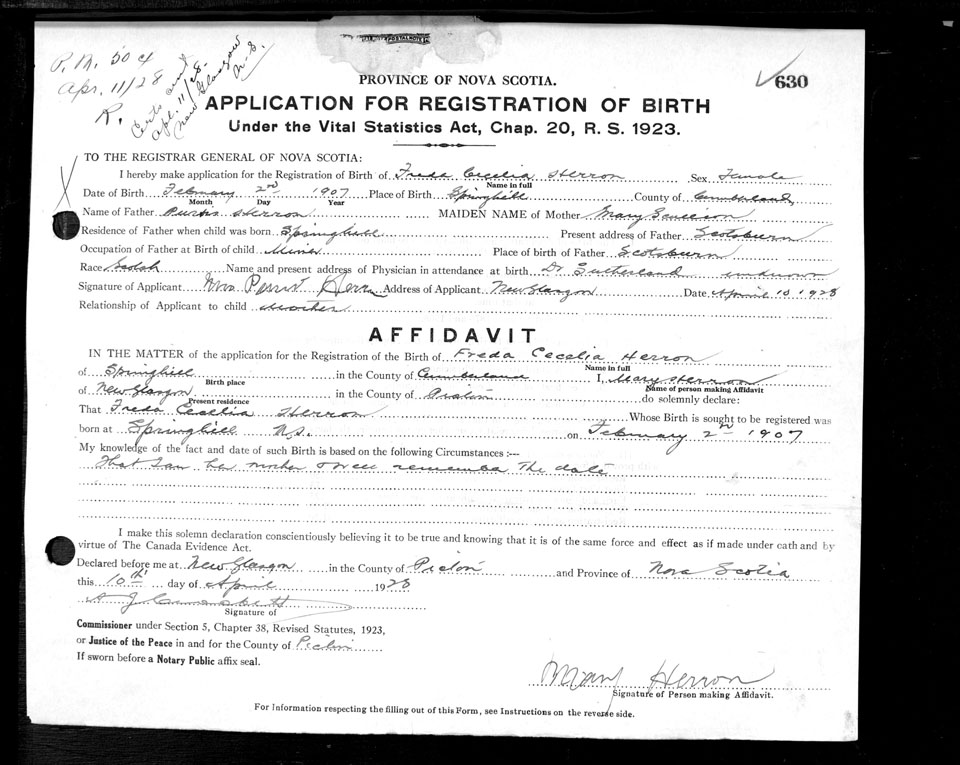 P. M. 50 4
Apr. 11/28
R.
Certs and
Apl. 11/28.
New Glasgow
N-S.
630
PROVINCE OF NOVA SCOTIA.
APPLICATION FOR REGISTRATION OF BIRTH
Under the Vital Statistics Act, Chap. 20, R. S. 1923.
TO THE REGISTRAR GENERAL OF NOVA SCOTIA:
I hereby make application for the Registration of Birth of Freda Cecelia Herron Sex Female
Name in full
Date of Birth February 2nd 1907 Place of Birth Springhill County of Cumberland
Month Day Year
Name of Father Herron MAIDEN NAME of Mother Mary
Residence of Father when child was born Springhill Present address of Father Scotsburn
Occupation of Father at Birth of child Miner Place of birth of Father Scotsburn
Race Scotch Name and present address of Physician in attendance at birth Dr Sutherland unknown
Signature of Applicant Mrs Herron Address of Applicant New Glasgow Date April 10 1928
Relationship of Applicant to child Mother
AFFIDAVIT
IN THE MATTER of the application for the Registration of the Birth of Freda Cecelia Herron
Name in full
of Springhill in the County of Cumberland I, Mary Herron
Birth place Name of person making Affidavit
of New Glasgow in the County of Pictou do solemnly declare:
Present residence
That Freda Cecelia Herron Whose Birth is sought to be registered was
born at Springhill N.S. on February 2nd 1907
My knowledge of the fact and date of such Birth is based on the following Circumstances :--
That I am her mother & well remember the date
I make this solemn declaration conscientiously believing it to be true and knowing that it is of the same force and effect as if made under oath and by
virtue of The Canada Evidence Act.
Declared before me at New Glasgow in the County of Pictou and Province of Nova Scotia
this 10th day of April 1928
Signature of
Commissioner under Section 5, Chapter 38, Revised Statutes, 1923,
or Justice of the Peace in and for the County of Pictou
If sworn before a Notary Public affix seal.
Mary Herron
Signature of Person making Affidavit.
For Information respecting the filling out of this Form, see Instructions on the reverse side.